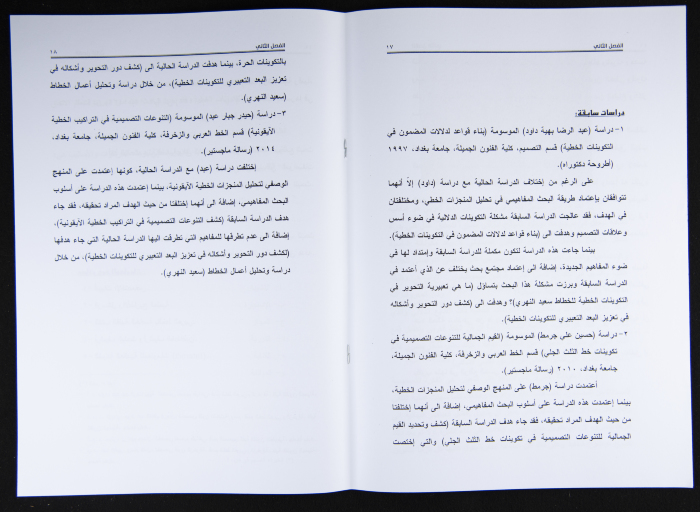 الفصل الثاني
١٧
دراسات سابقة:
١- دراسة (عبد الرضا بهية داود) الموسومة (بناء قواعد لدلالات المضمون في
التكوينات الخطية) قسم التصميم، كلية الفنون الجميلة، جامعة بغداد، ١٩٩٧
(أطروحة دكتوراه).
على الرغم من إختلاف الدراسة الحالية مع دراسة (داود) إلا أنهما
تتوافقان بإعتماد طريقة البحث المفاهيمي في تحليل المنجزات الخطي، ومختلفتان
في الهدف، فقد عالجت الدراسة السابقة مشكلة التكوينات الدلالية في ضوء أسس
وعلاقات التصميم وهدفت الى (بناء قواعد لدلالات المضمون في التكوينات الخطية).
بينما جاءت هذه الدراسة لتكون مكملة للدراسة السابقة وإمتداد لها في
ضوء المفاهيم الجديدة، إضافة الى إعتماد مجتمع بحث يختلف عن الذي أعتمد في
الدراسة السابقة وبرزت مشكلة هذا البحث بتساؤل (ما هي تعبيرية التحوير في
التكوينات الخطية للخطاط سعيد النهري)؟ وهدفت الى (كشف دور التحوير وأشكاله
في تعزيز البعد التعبيري للتكوينات الخطية).
٢- دراسة (حسين علي جرمط) الموسومة (القيم الجمالية للتنوعات التصميمية في
تكوينات خط الثلث الجلي) قسم الخط العربي والزخرفة، كلية الفنون الجميلة،
جامعة بغداد، ٢٠١٠ (رسالة ماجستير).
أعتمدت دراسة (جرمط) على المنهج الوصفي لتحليل المنجزات الخطية،
بينما إعتمدت هذه الدراسة على أسلوب البحث المفاهيمي، إضافة الى أنهما إختلفتا
من حيث الهدف المراد تحقيقه، فقد جاء هدف الدراسة السابقة (كشف وتحديد القيم
الجمالية للتنوعات التصميمية في تكوينات خط الثلث الجلي) والتي إختصت
الفصل الثاني
١٨
بالتكوينات الحرة، بينما هدفت الدراسة الحالية الى (كشف دور التحوير وأشكاله في
تعزيز البعد التعبيري للتكوينات الخطية)، من خلال دراسة وتحليل أعمال الخطاط
(سعيد النهري).
٣- دراسة (حيدر جبار عبد) الموسومة (التنوعات التصميمية في التراكيب الخطية
الأيقونية) قسم الخط العربي والزخرفة، كلية الفنون الجميلة، جامعة بغداد،
٢٠١٤ (رسالة ماجستير).
إختلفت دراسة (عبد) مع الدراسة الحالية، كونها إعتمدت على المنهج
الوصفي لتحليل المنجزات الخطية الأيقونية، بينما إعتمدت هذه الدراسة على أسلوب
البحث المفاهيمي، إضافة الى أنهما إختلفتا من حيث الهدف المراد تحقيقه، فقد جاء
هدف الدراسة السابقة (كشف التنوعات التصميمية في التراكيب الخطية الأيقونية)،
إضافة الى عدم تطرقها للمفاهيم التي تطرقت اليها الدراسة الحالية التي جاء هدفها
(لكشف دور التحوير وأشكاله في تعزيز البعد التعبيري للتكوينات الخطية)، من خلال
دراسة وتحليل أعمال الخطاط (سعيد النهري).